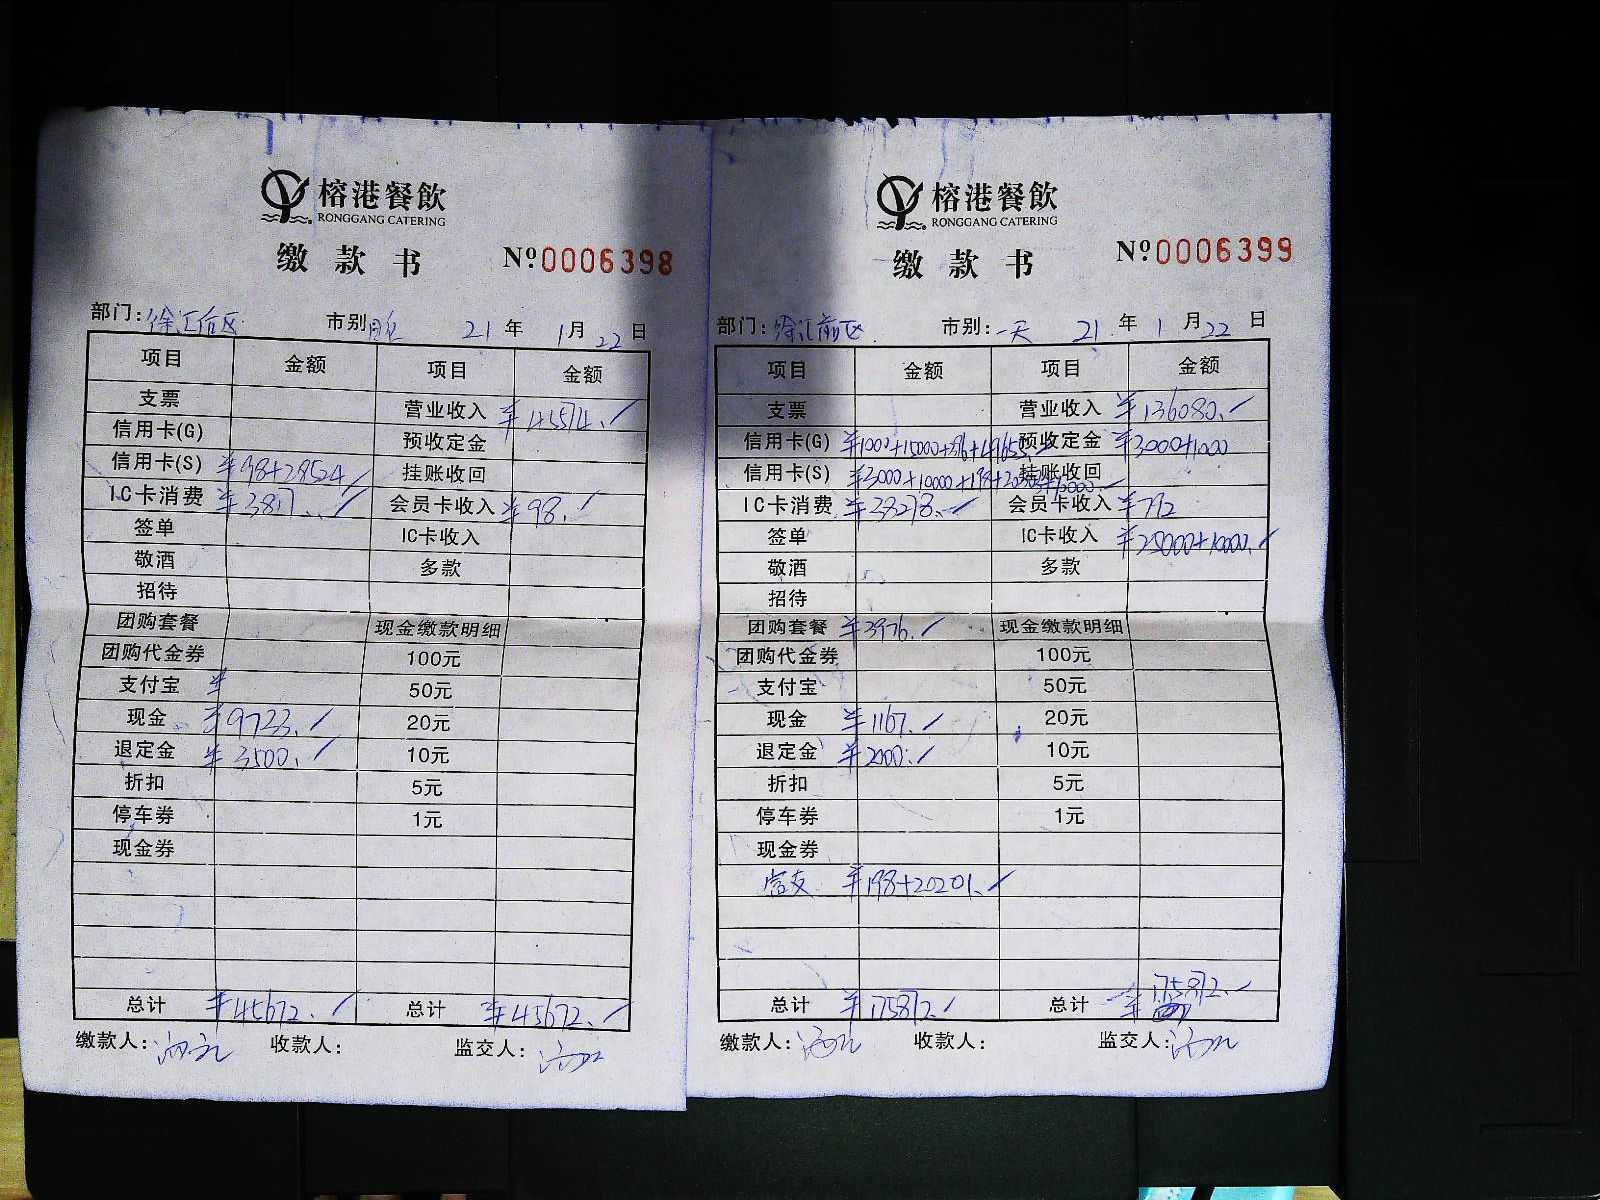 榕港餐飲
RONGGANG CATERING
缴款书 Nº0006398
部门: 徐汇后区 市别 21年 1月22日
项目 金额 项目 金额
支票 营业收入 ¥45574.
信用卡(G) 预收定金
信用卡(S) ¥98+28524 挂账收回
IC卡消费 ¥3827. 会员卡收入 ¥98.
签单 IC卡收入
敬酒 多款
招待
团购套餐 现金缴款明细
团购代金券 100元
支付宝 ¥ 50元
现金 ¥9723. 20元
退定金 ¥3500. 10元
折扣 5元
停车券 1元
现金券
总计 ¥45672. 总计 ¥45672.
缴款人: 收款人: 监交人:
榕港餐飲
RONGGANG CATERING
缴款书 Nº0006399
部门: 徐汇前区 市别: 一天 21年 1月22日
项目 金额 项目 金额
支票 营业收入 ¥136080.
信用卡(G) ¥1000+15000+396+49655. 预收定金 ¥3000+1000
信用卡(S) ¥3000+10000+198+ +10000. 挂账收回
IC卡消费 ¥38278. 会员卡收入 ¥792
签单 IC卡收入 ¥25000+10000.
敬酒 多款
招待
团购套餐 ¥3976. 现金缴款明细
团购代金券 100元
支付宝 50元
现金 ¥1167. 20元
退定金 ¥2000. 10元
折扣 5元
停车券 1元
现金券
¥198+20201.
总计 ¥175872. 总计 ¥175872.
缴款人: 收款人: 监交人: